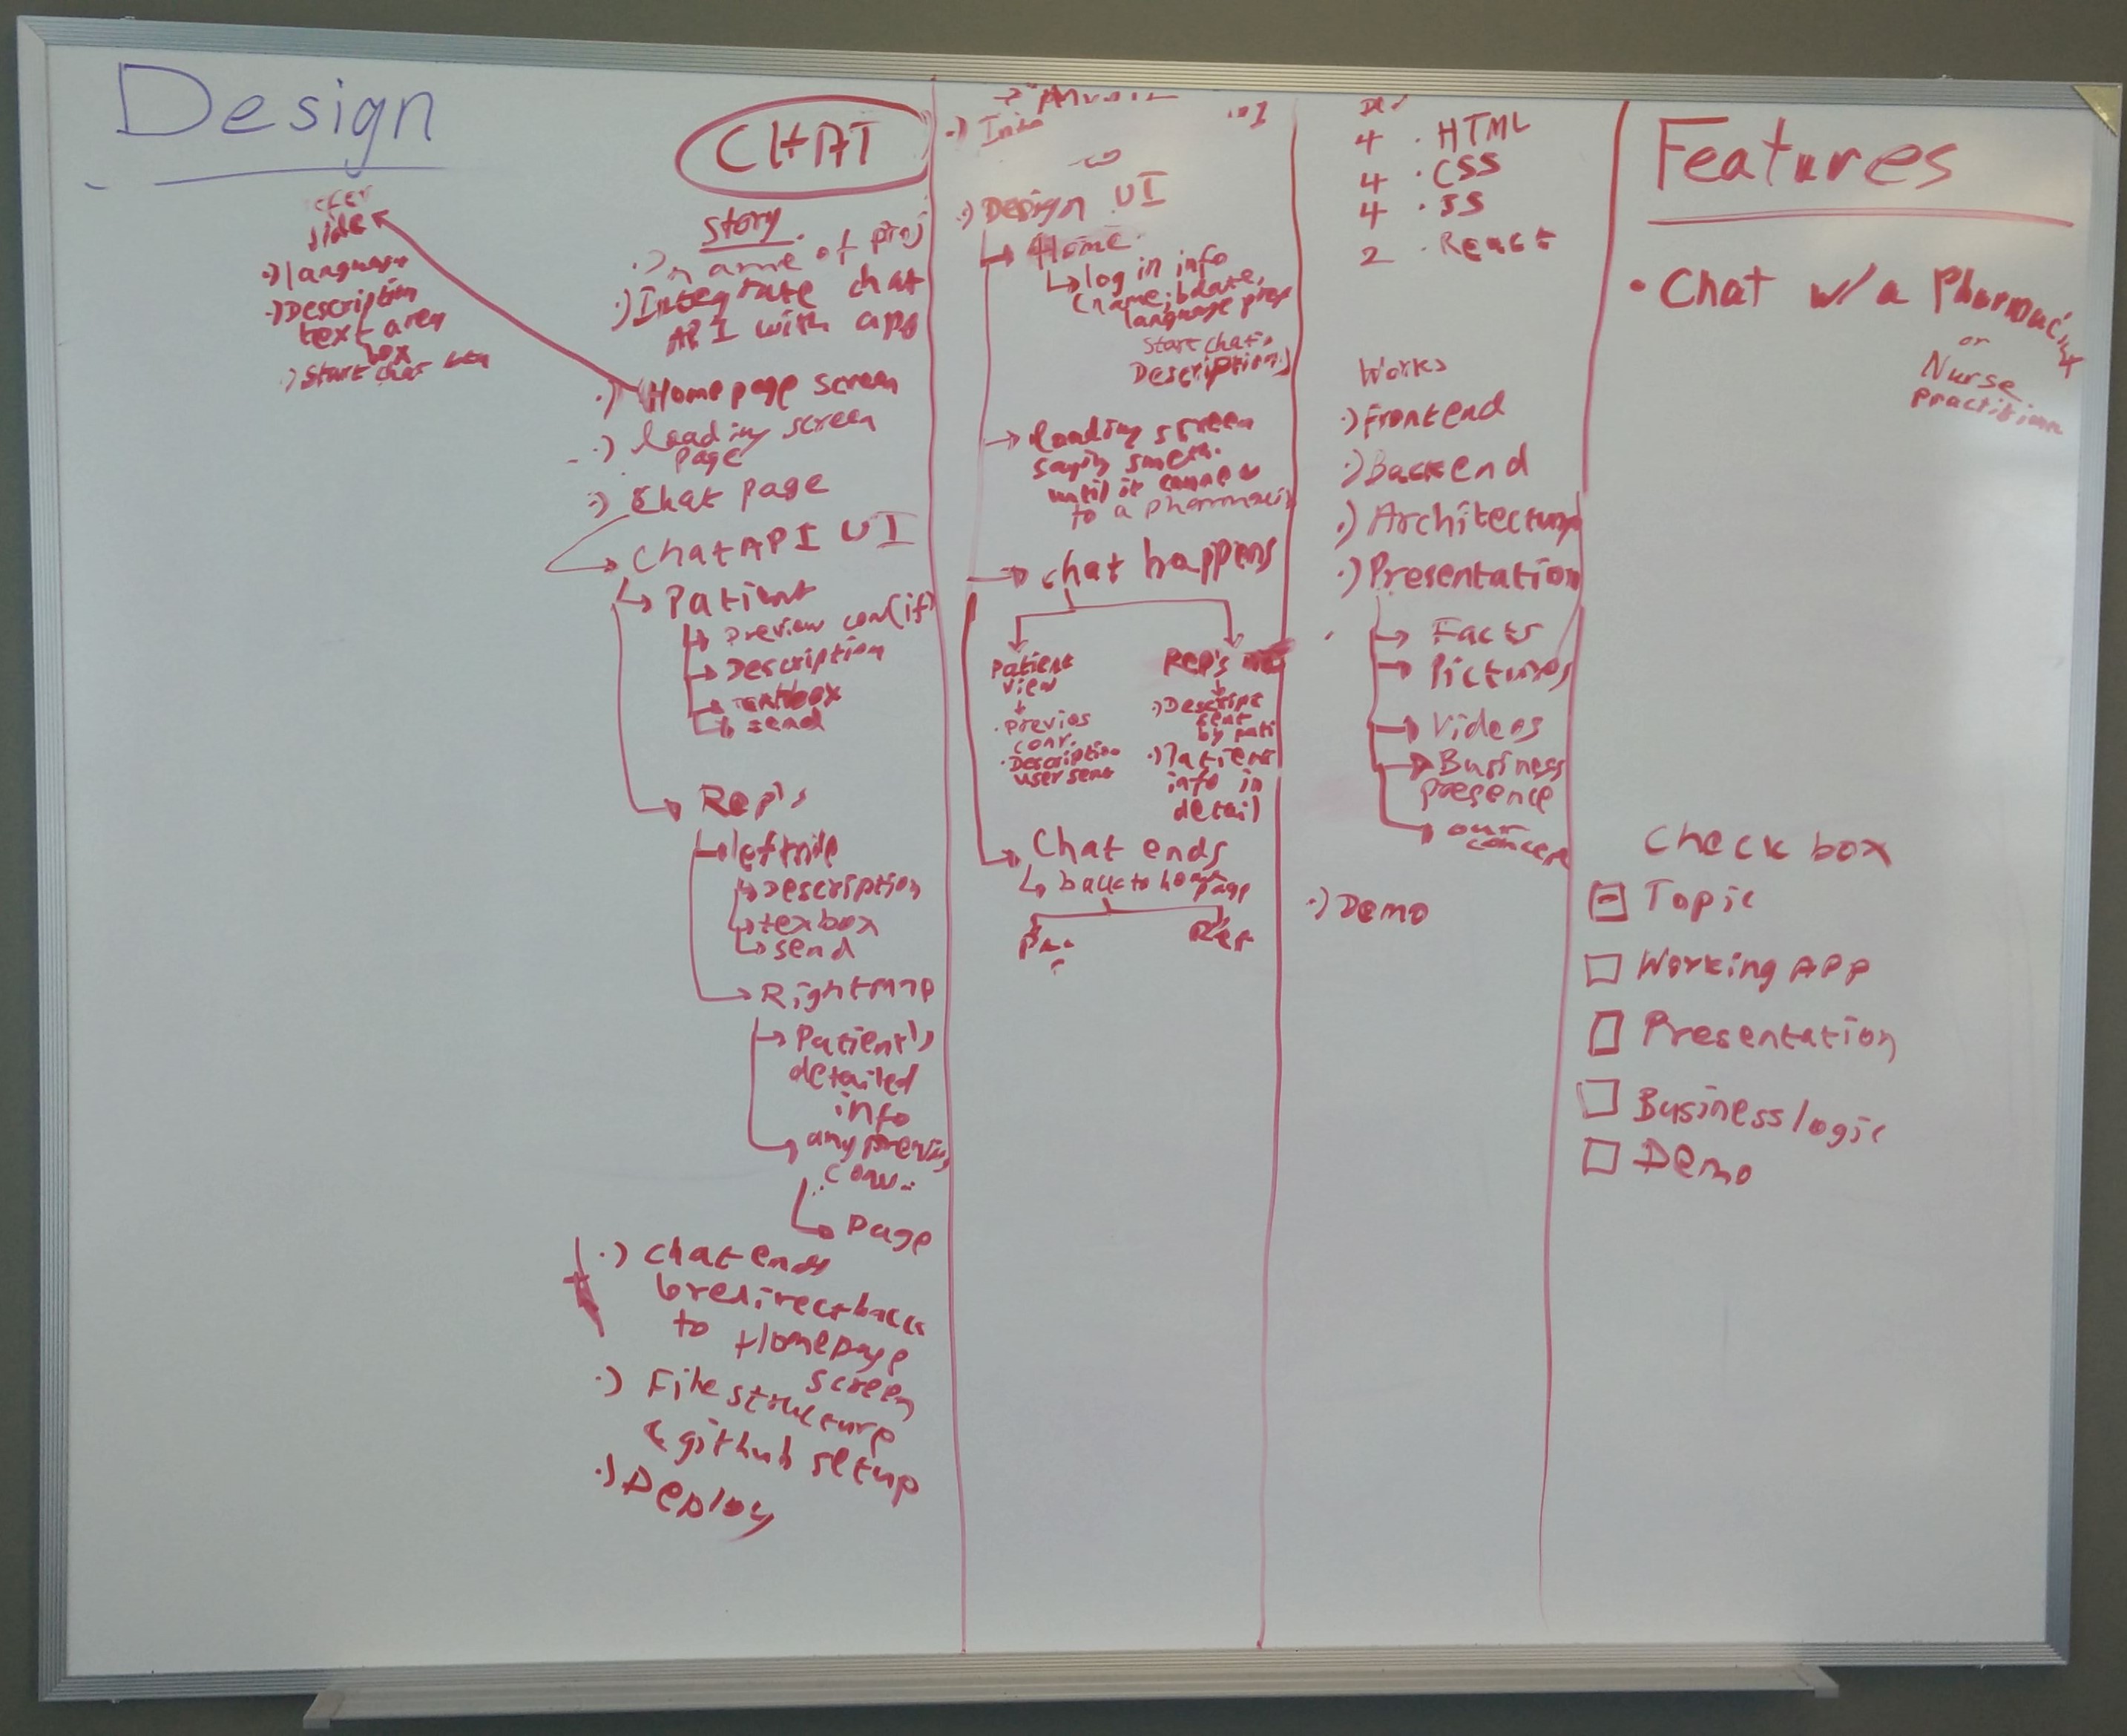 Design
side
·) language
·) Description
text area
box
·) Start chat btn
CHAT
Story
·) name of proj
·) Integrate chat
API with app
·) Homepage screen
·) loading screen
page
·) Chat page
Chat API UI
Patient
Preview con(if)
Description
textbox
send
Rep's
left side
Description
texbox
send
Right
Patient's
detailed
info
any previs
conv..
page
·) chat ends
redirect back
to Homepage
screen
·) File structure
& github setup
·) Deploy
·) Design UI
Home
log in info
(name, bdate,
language pref
Start chat,
Description)
loading screen
saying smeth.
until it connects
to a pharmacis
chat happens
Patient
view
· previos
conv.
· Description
user sent
Rep's
·) Descript
sent
by pati
·) Patient
info in
detail
Chat ends
back to home
page
Rep
4 · HTML
4 · CSS
4 · JS
2 · React
Works
·) Frontend
·) Backend
·) Architecture
·) Presentation
Facts
Pictures
Videos
Business
presence
our
concept
·) Demo
Features
· Chat w/a Pharmacist
or
Nurse
Practition
Check box
Topic
Working APP
Presentation
Business logic
Demo